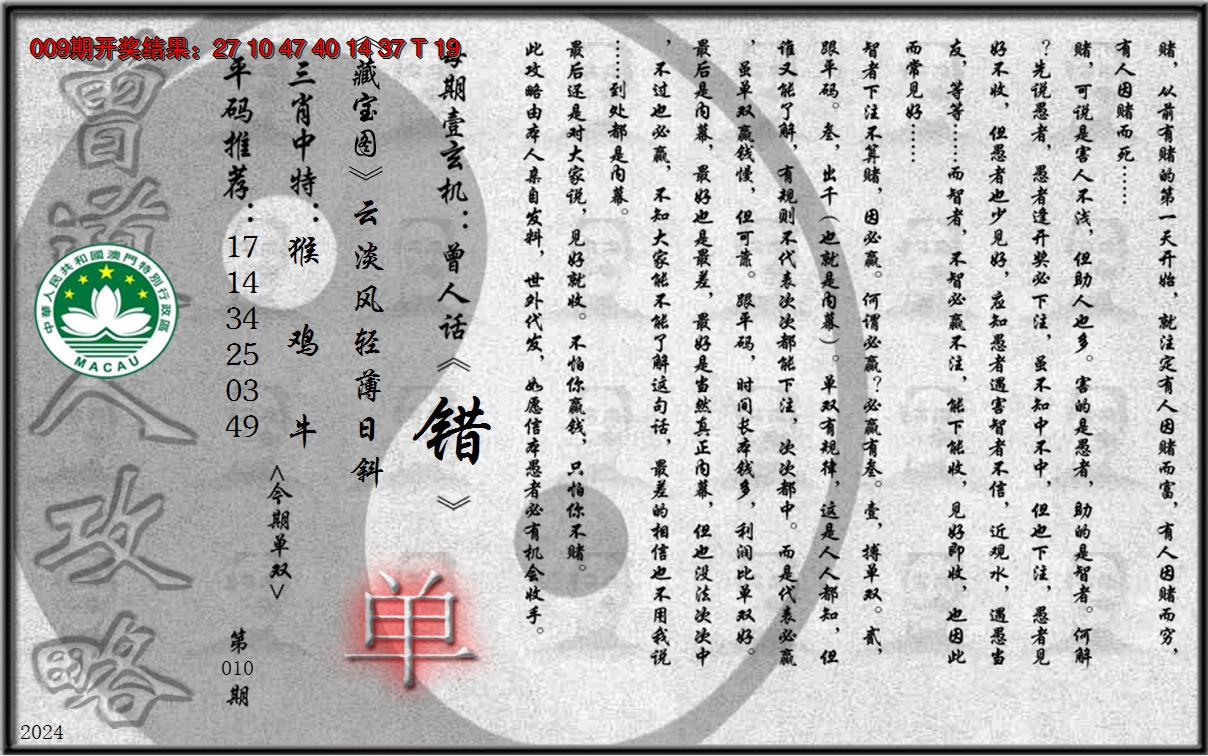 009期开奖结果：27 10 47 40 14 37 T 19
赌，从前有赌的第一天开始，就注定有人因赌而富，有人因赌而穷，
有人因赌而死……
赌，可说是害人不浅，但助人也多。害的是愚者，助的是智者。何解
？先说愚者，愚者逢开奖必下注，虽不知中不中，但也下注，愚者见
好不收，但愚者也少见好，应知愚者遇害智者不信，近观水，遇愚当
友，等等……而智者，不智必赢不注，能下能收，见好即收，也因此
而常见好……
智者下注不算赌，因必赢。何谓必赢？必赢有叁。壹，搏单双。贰，
跟平码。叁，出千（也就是内幕）。单双有规律，这是人人都知，但
谁又能了解，有规则不代表次次都能下注，次次都中。而是代表必赢
，虽单双赢钱慢，但可靠。跟平码，时间长本钱多，利润比单双好。
最后是内幕，最好也是最差，最好是当然真正内幕，但也没法次次中
，不过也必赢，不知大家能不能了解这句话，最差的相信也不用我说
……到处都是内幕。
最后还是对大家说，见好就收。不怕你赢钱，只怕你不赌。
此攻略由本人亲自发料，世外代发，如愿信本愚者必有机会收手。
每期壹玄机：曾人话《错》
《藏宝图》云淡风轻薄日斜
单
三肖中特：猴 鸡 牛
<今期单双>
平码推荐：17 14 34 25 03 49
第010期
曾道人攻略
中華人民共和國澳門特別行政區
MACAU
2024